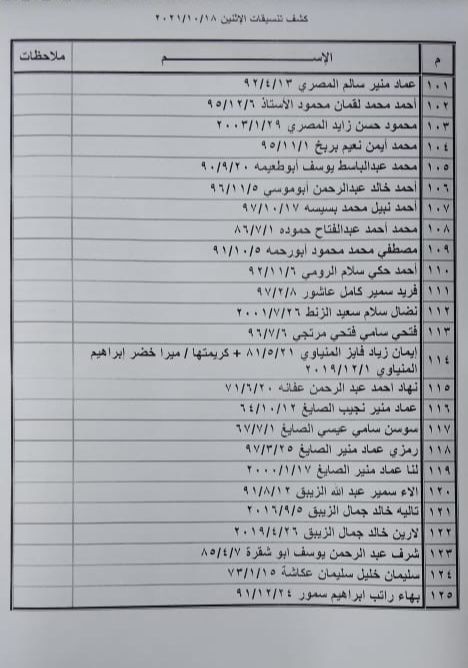 كشف تنسيقات الإثنين ٢٠٢١/١٠/١٨
م الإســـــــم ملاحظات
١٠١ عماد منير سالم المصري ٩٢/٤/١٣
١٠٢ أحمد محمد لقمان محمود الأستاذ ٩٥/١٢/٦
١٠٣ محمود حسن زايد المصري ٢٠٠٣/١/٢٩
١٠٤ محمد أيمن نعيم بربخ ٩٥/١١/١
١٠٥ محمد عبدالباسط يوسف أبوطعيمه ٩٠/٩/٢٠
١٠٦ أحمد خالد عبدالرحمن أبوموسي ٩٦/١١/٥
١٠٧ أحمد نبيل محمد بسيسه ٩٧/١٠/١٧
١٠٨ محمد أحمد عبدالفتاح حموده ٨٦/٧/١
١٠٩ مصطفي محمد محمود أبورحمه ٩١/١٠/٥
١١٠ أحمد حكي سلام الرومي ٩٢/١١/٦
١١١ فريد سمير كامل عاشور ٩٧/٢/٨
١١٢ نضال سلام سعيد الزنط ٢٠٠١/٧/٢٦
١١٣ فتحي سامي فتحي مرتجي ٩٦/٧/٦
١١٤ إيمان زياد فايز المنياوي ٨١/٥/٢١ + كريمتها / ميرا خضر إبراهيم
المنياوي ٢٠١٩/١٢/١
١١٥ نهاد احمد عبد الرحمن عفانه ٧١/٦/٢٠
١١٦ عماد منير نجيب الصايغ ٦٤/١٠/١٢
١١٧ سوسن سامي عيسي الصايغ ٦٧/٧/١
١١٨ رمزي عماد منير الصايغ ٩٧/٣/٢٥
١١٩ لنا عماد منير الصايغ ٢٠٠٠/١/١٧
١٢٠ الاء سمير عبد الله الزيبق ٩١/٨/١٢
١٢١ تاليه خالد جمال الزيبق ٢٠١٦/٩/٥
١٢٢ لارين خالد جمال الزيبق ٢٠١٩/٤/٢٦
١٢٣ شرف عبد الرحمن يوسف ابو شقرة ٨٥/٤/٧
١٢٤ سليمان خليل سليمان عكاشة ٧٣/١/١٥
١٢٥ بهاء راتب ابراهيم سمور ٩١/١٢/٢٤